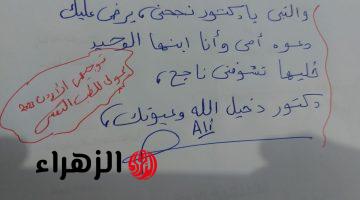 والنبي يا دكتور نجحني، يرضى عليك
دعوه أمي وأنا ابنها الوحيد
خليها تشوفني ناجح،
دكتور دخيل الله وعيونك،
Ali
الزهراء